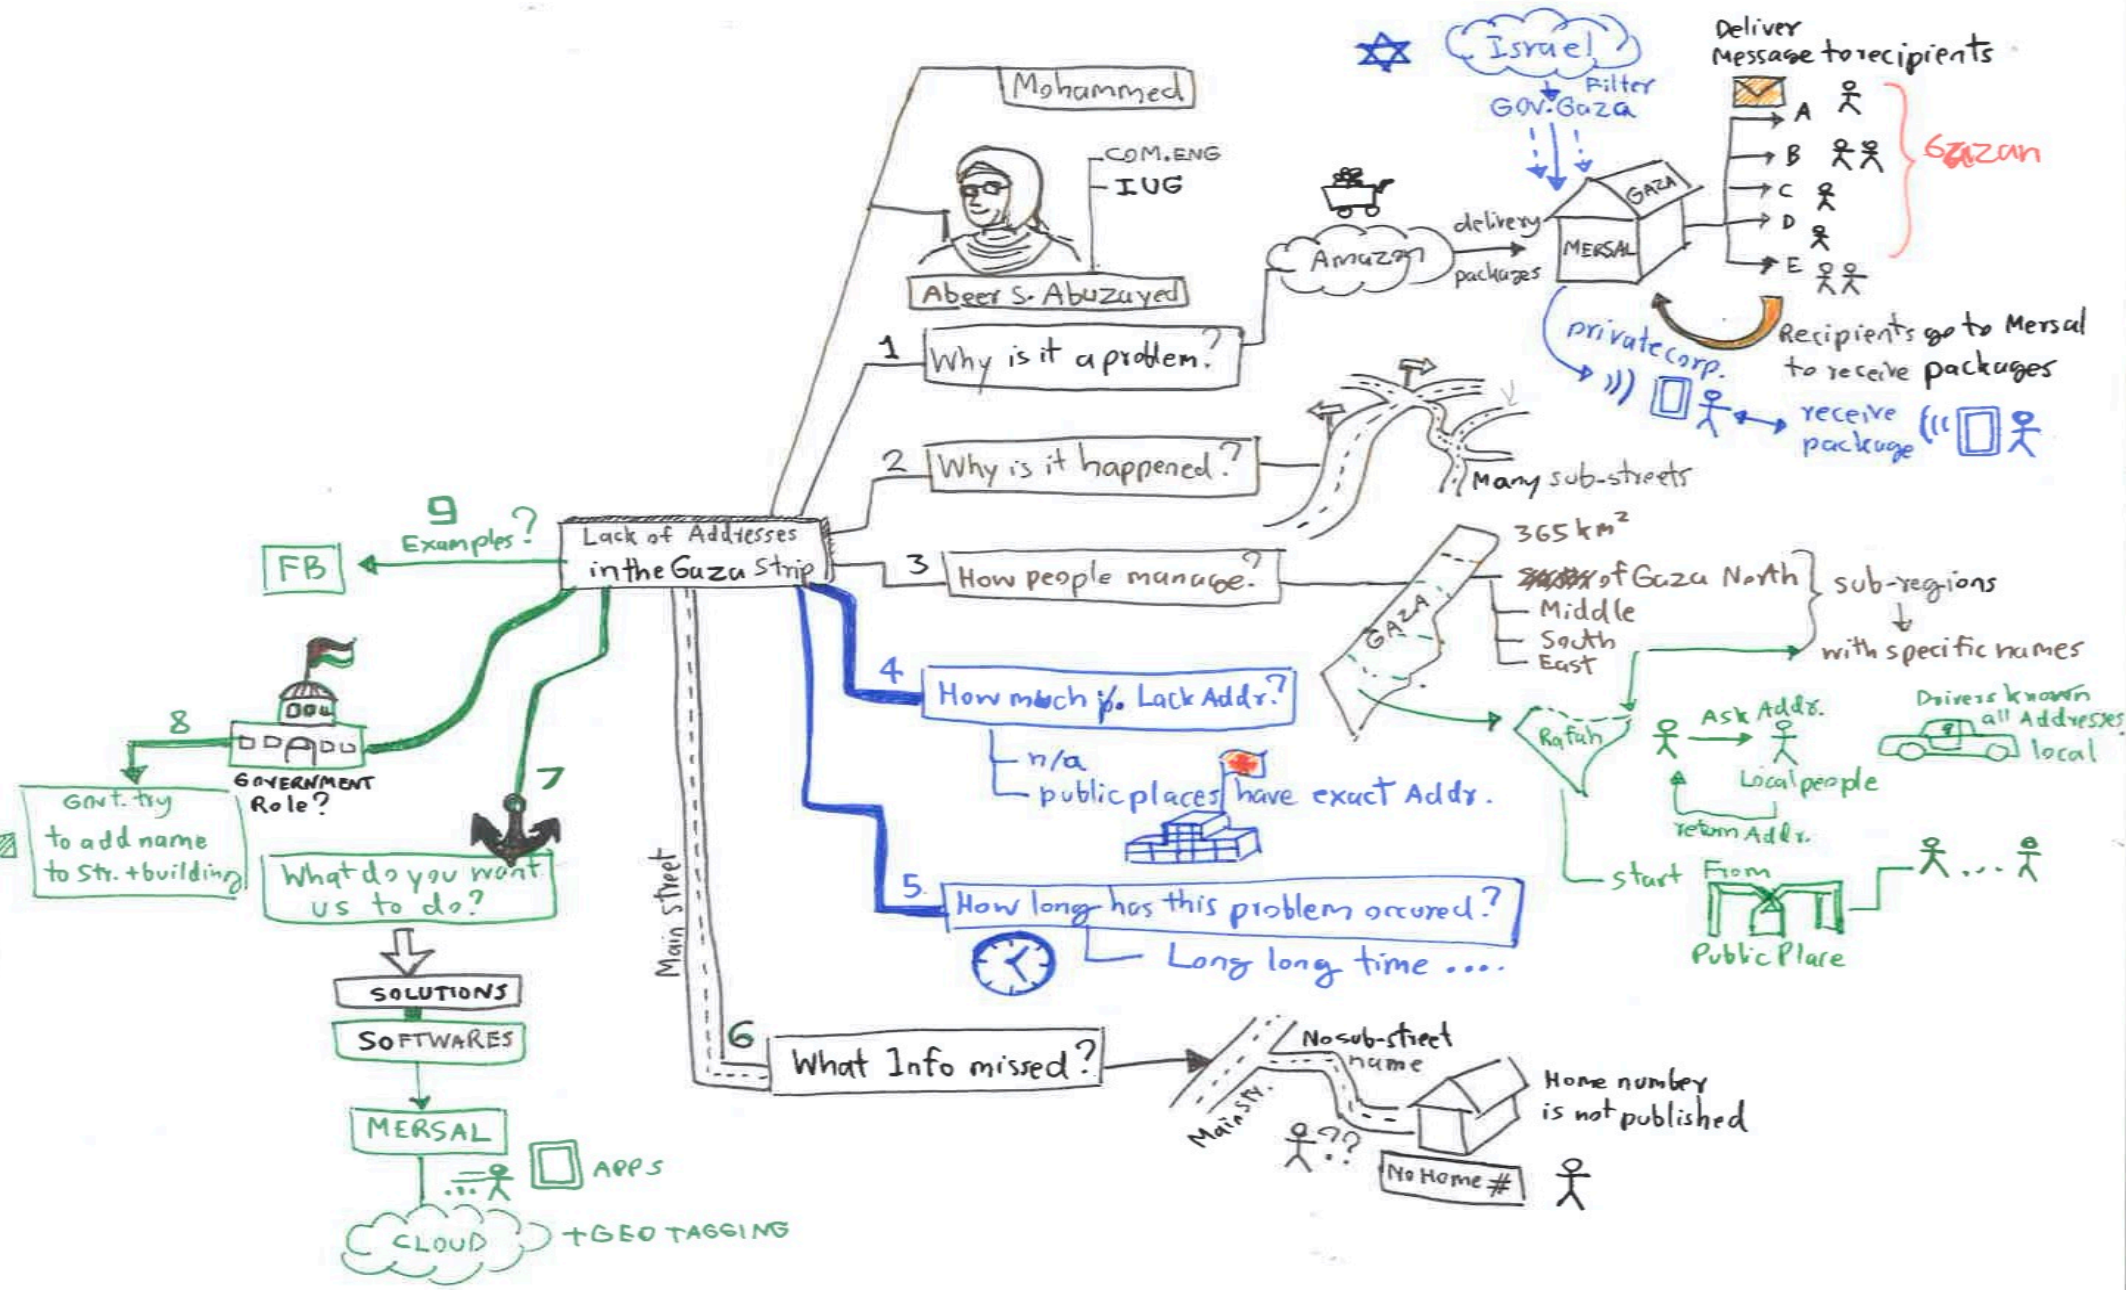 Mohammed
COM.ENG
IUG
Abeer S. Abuzayed
1
Why is it a problem?
Amazon
delivery
packages
Israel
Filter
GOV.Gaza
GAZA
MERSAL
Deliver
Message to recipients
A
B
C
D
E
Gazan
Recipients go to Mersal
to receive packages
private corp.
receive
package
2
Why is it happened?
Many sub-streets
Lack of Addresses
in the Gaza Strip
3
How people manage?
GAZA
365 km²
of Gaza North
Middle
South
East
sub-regions
with specific names
Rafah
Ask Addr.
Local people
return Addr.
Drivers known
all Addresses
local
start From
Public Place
4
How much %. Lack Addr.?
n/a
public places have exact Addr.
5
How long has this problem occured?
Long long time ....
Main street
6
What Info missed?
Main Str.
No sub-street
name
??
No Home #
Home number
is not published
7
What do you want
us to do?
SOLUTIONS
SOFTWARES
MERSAL
APPS
CLOUD
+GEO TAGGING
8
GOVERNMENT
Role?
Govt. try
to add name
to Str. + building
9
Examples?
FB